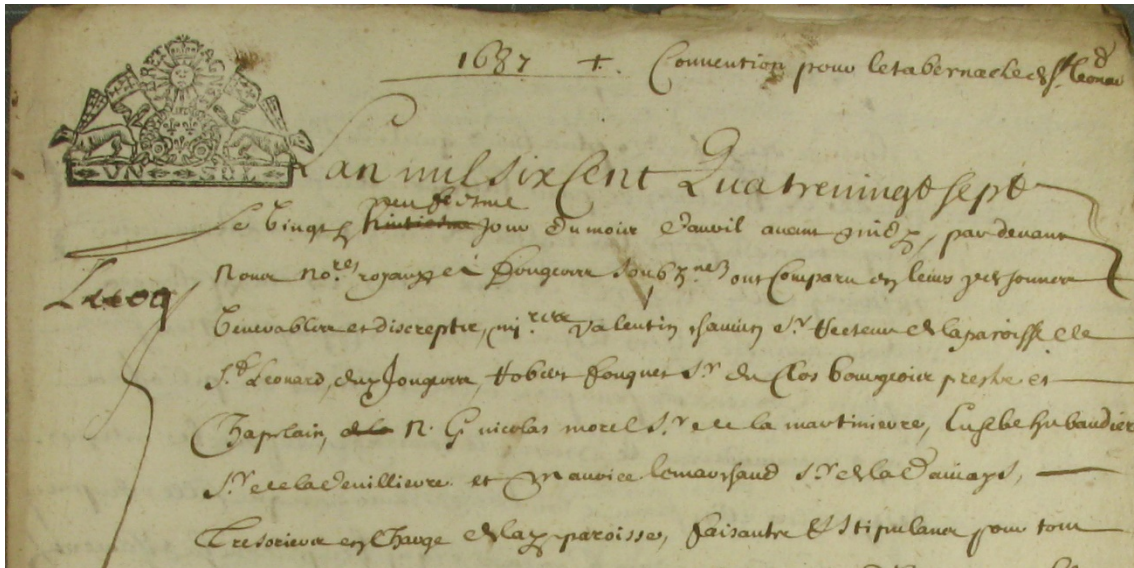 1687 + Convention pour le tabernacle de St Leonard
BRETAGNE
UN SOL
L'an mil six Cent Quatre vingt sept
neufiesme
Le vingt huitiesme Jour du mois d'avril avant midy, par devant
Lecoq
Nous nores royaux de fougeres soubznes ont Comparu en leurs personnes
Venerables et discrepts, Valentin sr Recteur de la paroisse de
St Leonard, fougeres, Robert fouquet Sr du Clos bourgeois prestre et
Chapelain, de la N. G nicolas morel Sr de la martiniere, Eusebe hubaudier
Sr de la et Maurice lemarchand Sr de la
Tresoriers en Charge de la paroisse, faisants Et Stipulants pour tous